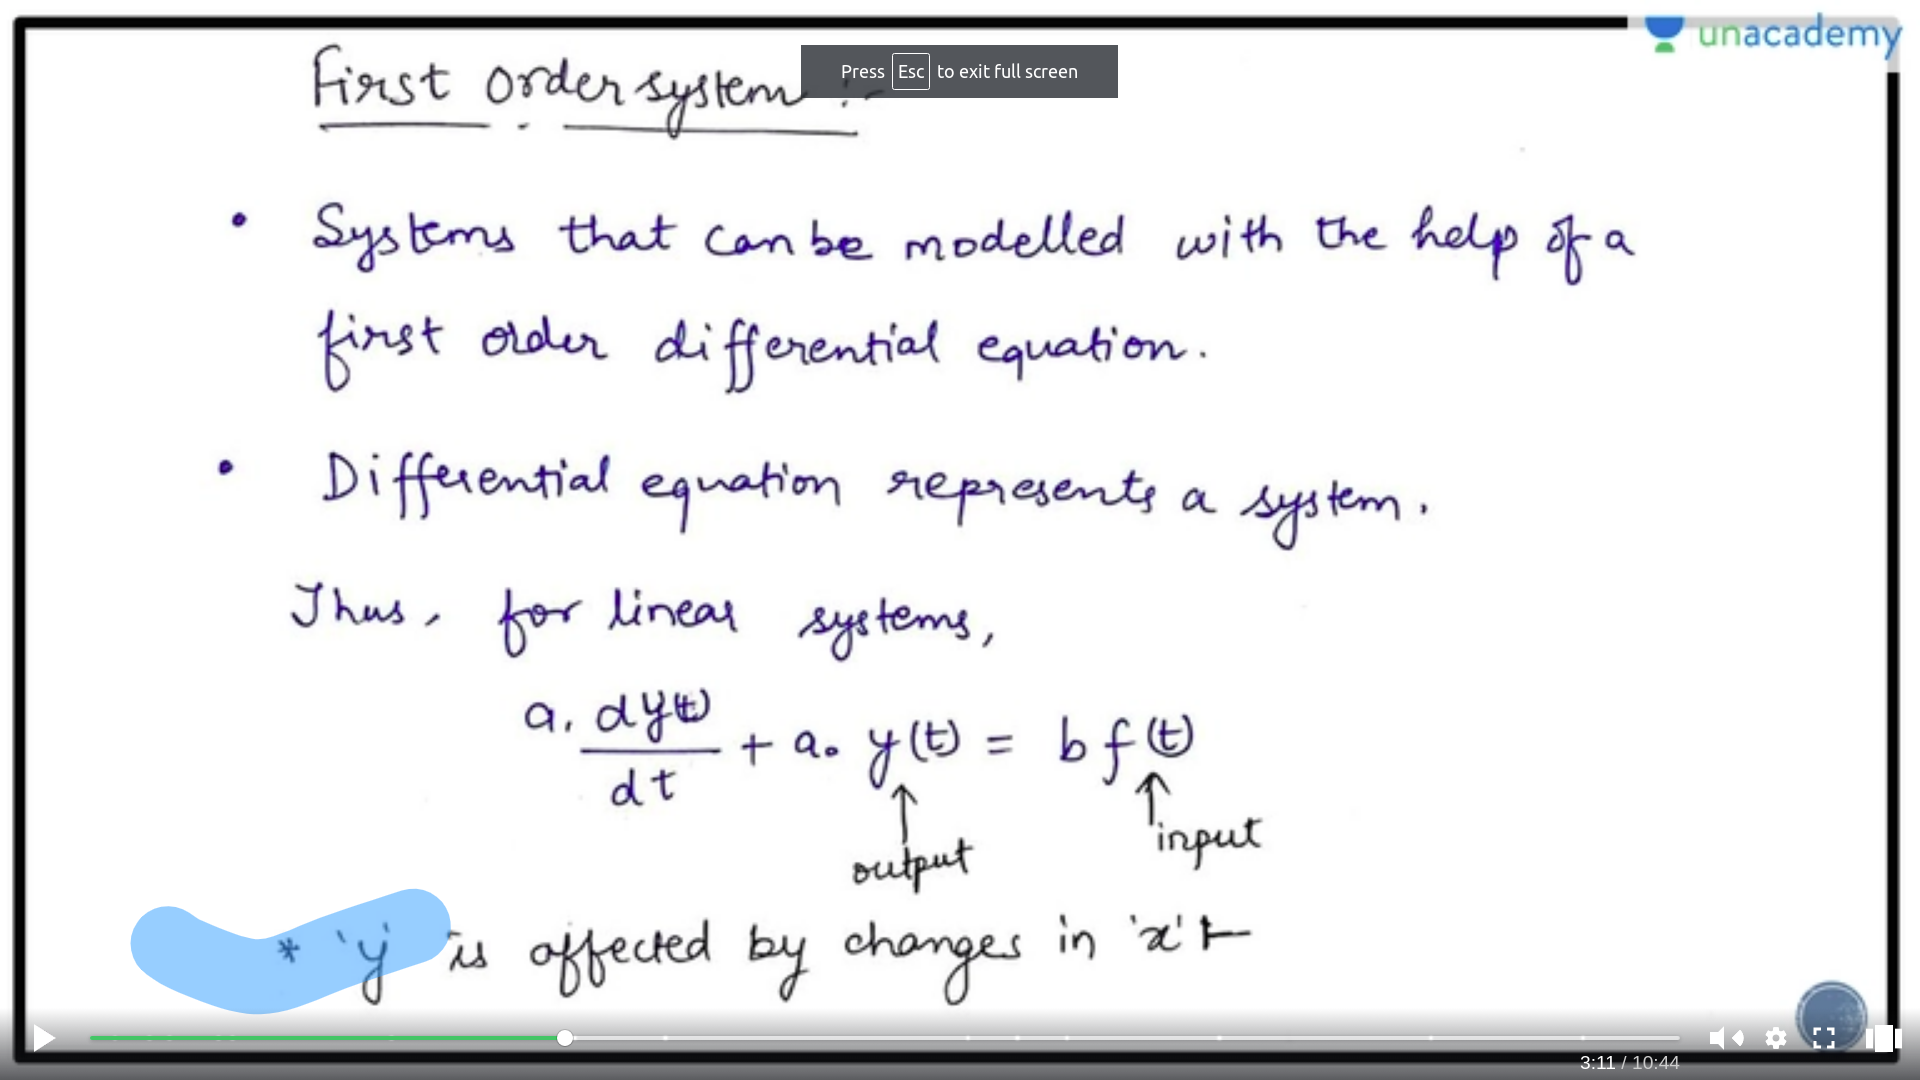 unacademy
Press Esc to exit full screen
First order system :-
• Systems that can be modelled with the help of a
first order differential equation.
• Differential equation represents a system.
Thus, for linear systems,
a₁ dy(t)/dt + a₀ y(t) = b f(t)
↑ output
↑ input
* 'y' is affected by changes in 'x'
3:11 / 10:44